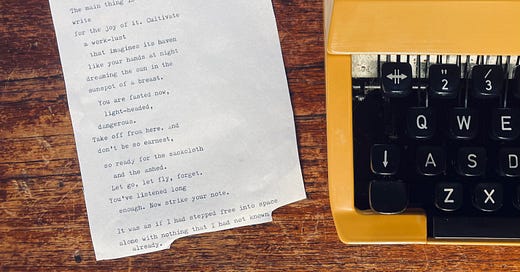 The main thing
write
for the joy of it. Cultivate
a work-lust
that imagines its haven
like your hands at night
dreaming the sun in the
sunspot of a breast.
You are fasted now,
light-headed,
dangerous.
Take off from here. and
don't be so earnest,
so ready for the sackcloth
and the ashed.
Let go, let fly, forget.
You've listened long
enough. Now strike your note.
It was as if I had stepped free into space
alone with nothing that I had not known
already.
" /
2 3
Q W E
A S D
Z X